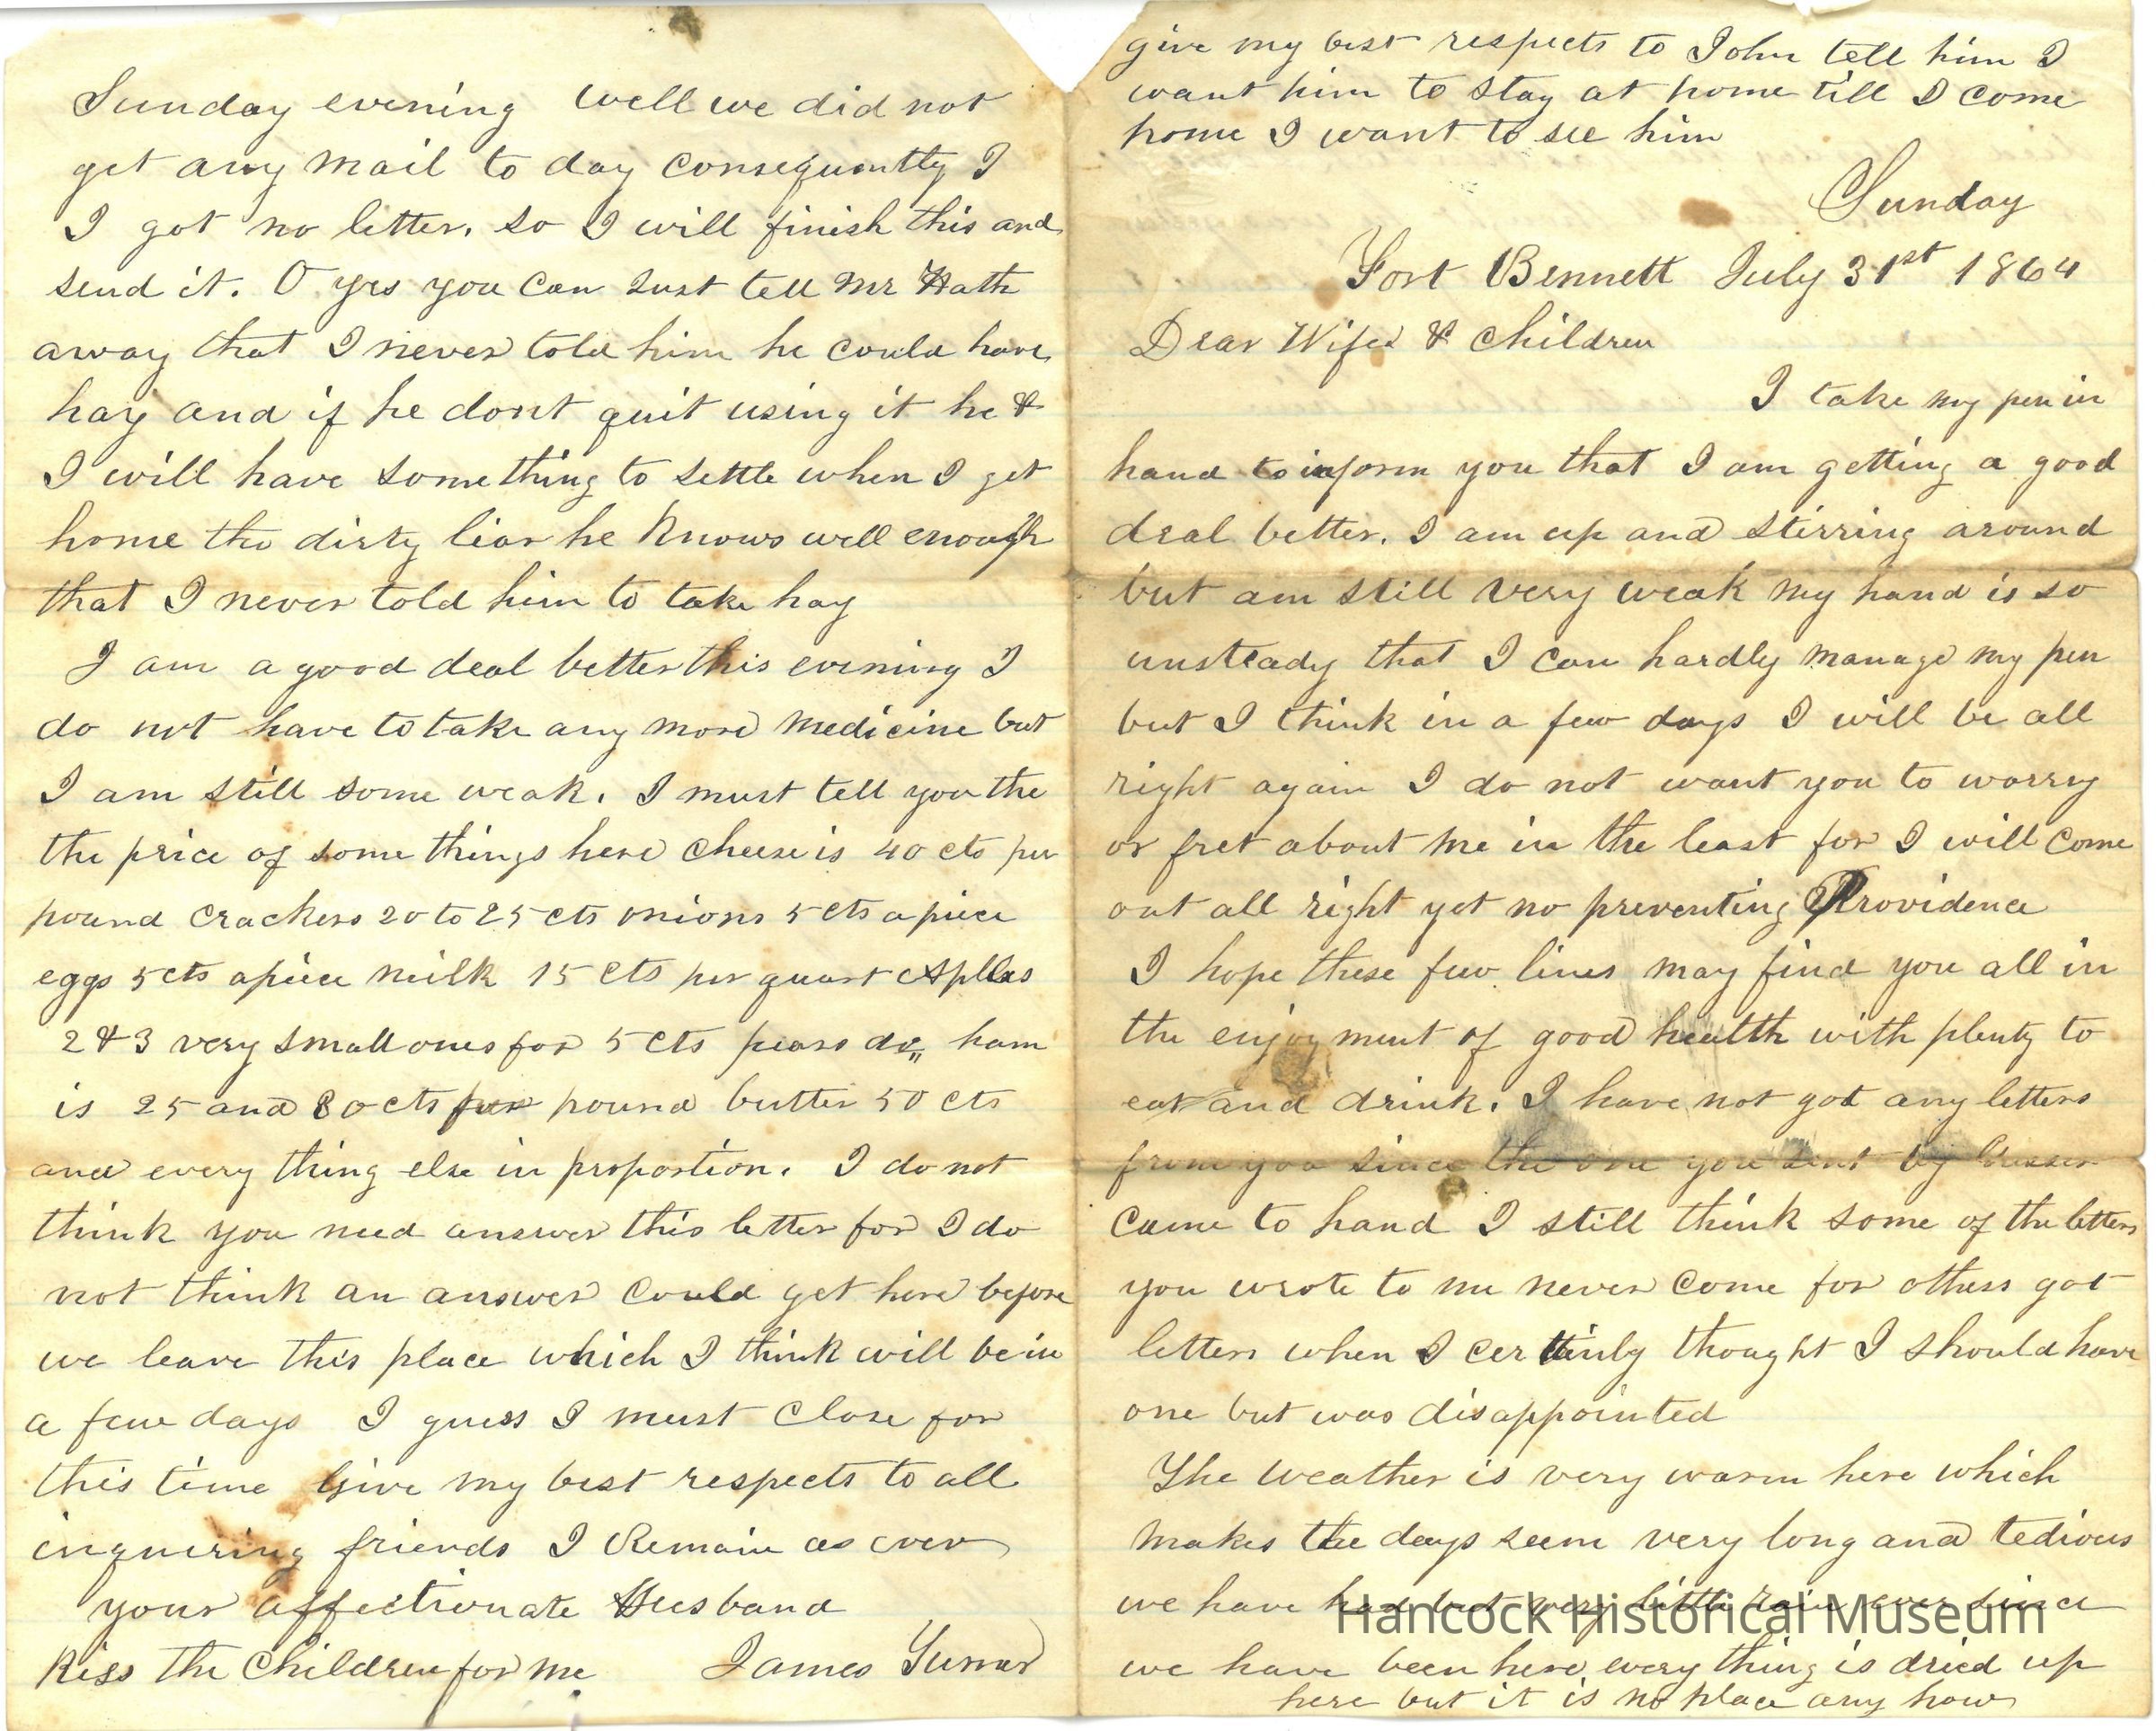 give my best respects to John tell him I
want him to stay at home till I come
home I want to see him
Sunday
Fort Bennett July 31st 1864
Dear Wife & Children
I take my pen in
hand to inform you that I am getting a good
deal better. I am up and stirring around
but am still very weak my hand is so
unsteady that I can hardly manage my pen
but I think in a few days I will be all
right again I do not want you to worry
or fret about me in the least for I will come
out all right yet no preventing Providence
I hope these few lines may find you all in
the enjoyment of good health with plenty to
eat and drink. I have not got any letters
from you since the one you sent by
came to hand I still think some of the letters
you wrote to me never come for others got
letters when I certtinly thought I should have
one but was disappointed
The weather is very warm here which
makes the days seem very long and tedious
we have had but very little rain ever since
we have been here every thing is dried up
here but it is no place any how
Hancock Historical Museum
Sunday evening well we did not
get any mail to day consequently I
I got no letter. so I will finish this and
send it. O yes you can just tell Mr Hath
away that I never told him he could have
hay and if he dont quit using it he &
I will have something to settle when I get
home the dirty liar he knows well enough
that I never told him to take hay
I am a good deal better this evening I
do not have to take any more medicine but
I am still some weak. I must tell you the
the price of some things here cheese is 40 cts per
pound crackers 20 to 25 cts onions 5 cts apiece
eggs 5 cts apiece milk 15 cts per quart Aplles
2 & 3 very small ones for 5 cts pears do,, ham
is 25 and 30 cts per pound butter 50 cts
and every thing else in proportion. I do not
think you need answer this letter for I do
not think an answer could get here before
we leave this place which I think will be in
a few days I guess I must close for
this time Give my best respects to all
inquering friends I Remain as ever
your affectionate Husband
Kiss the Children for me James Turner